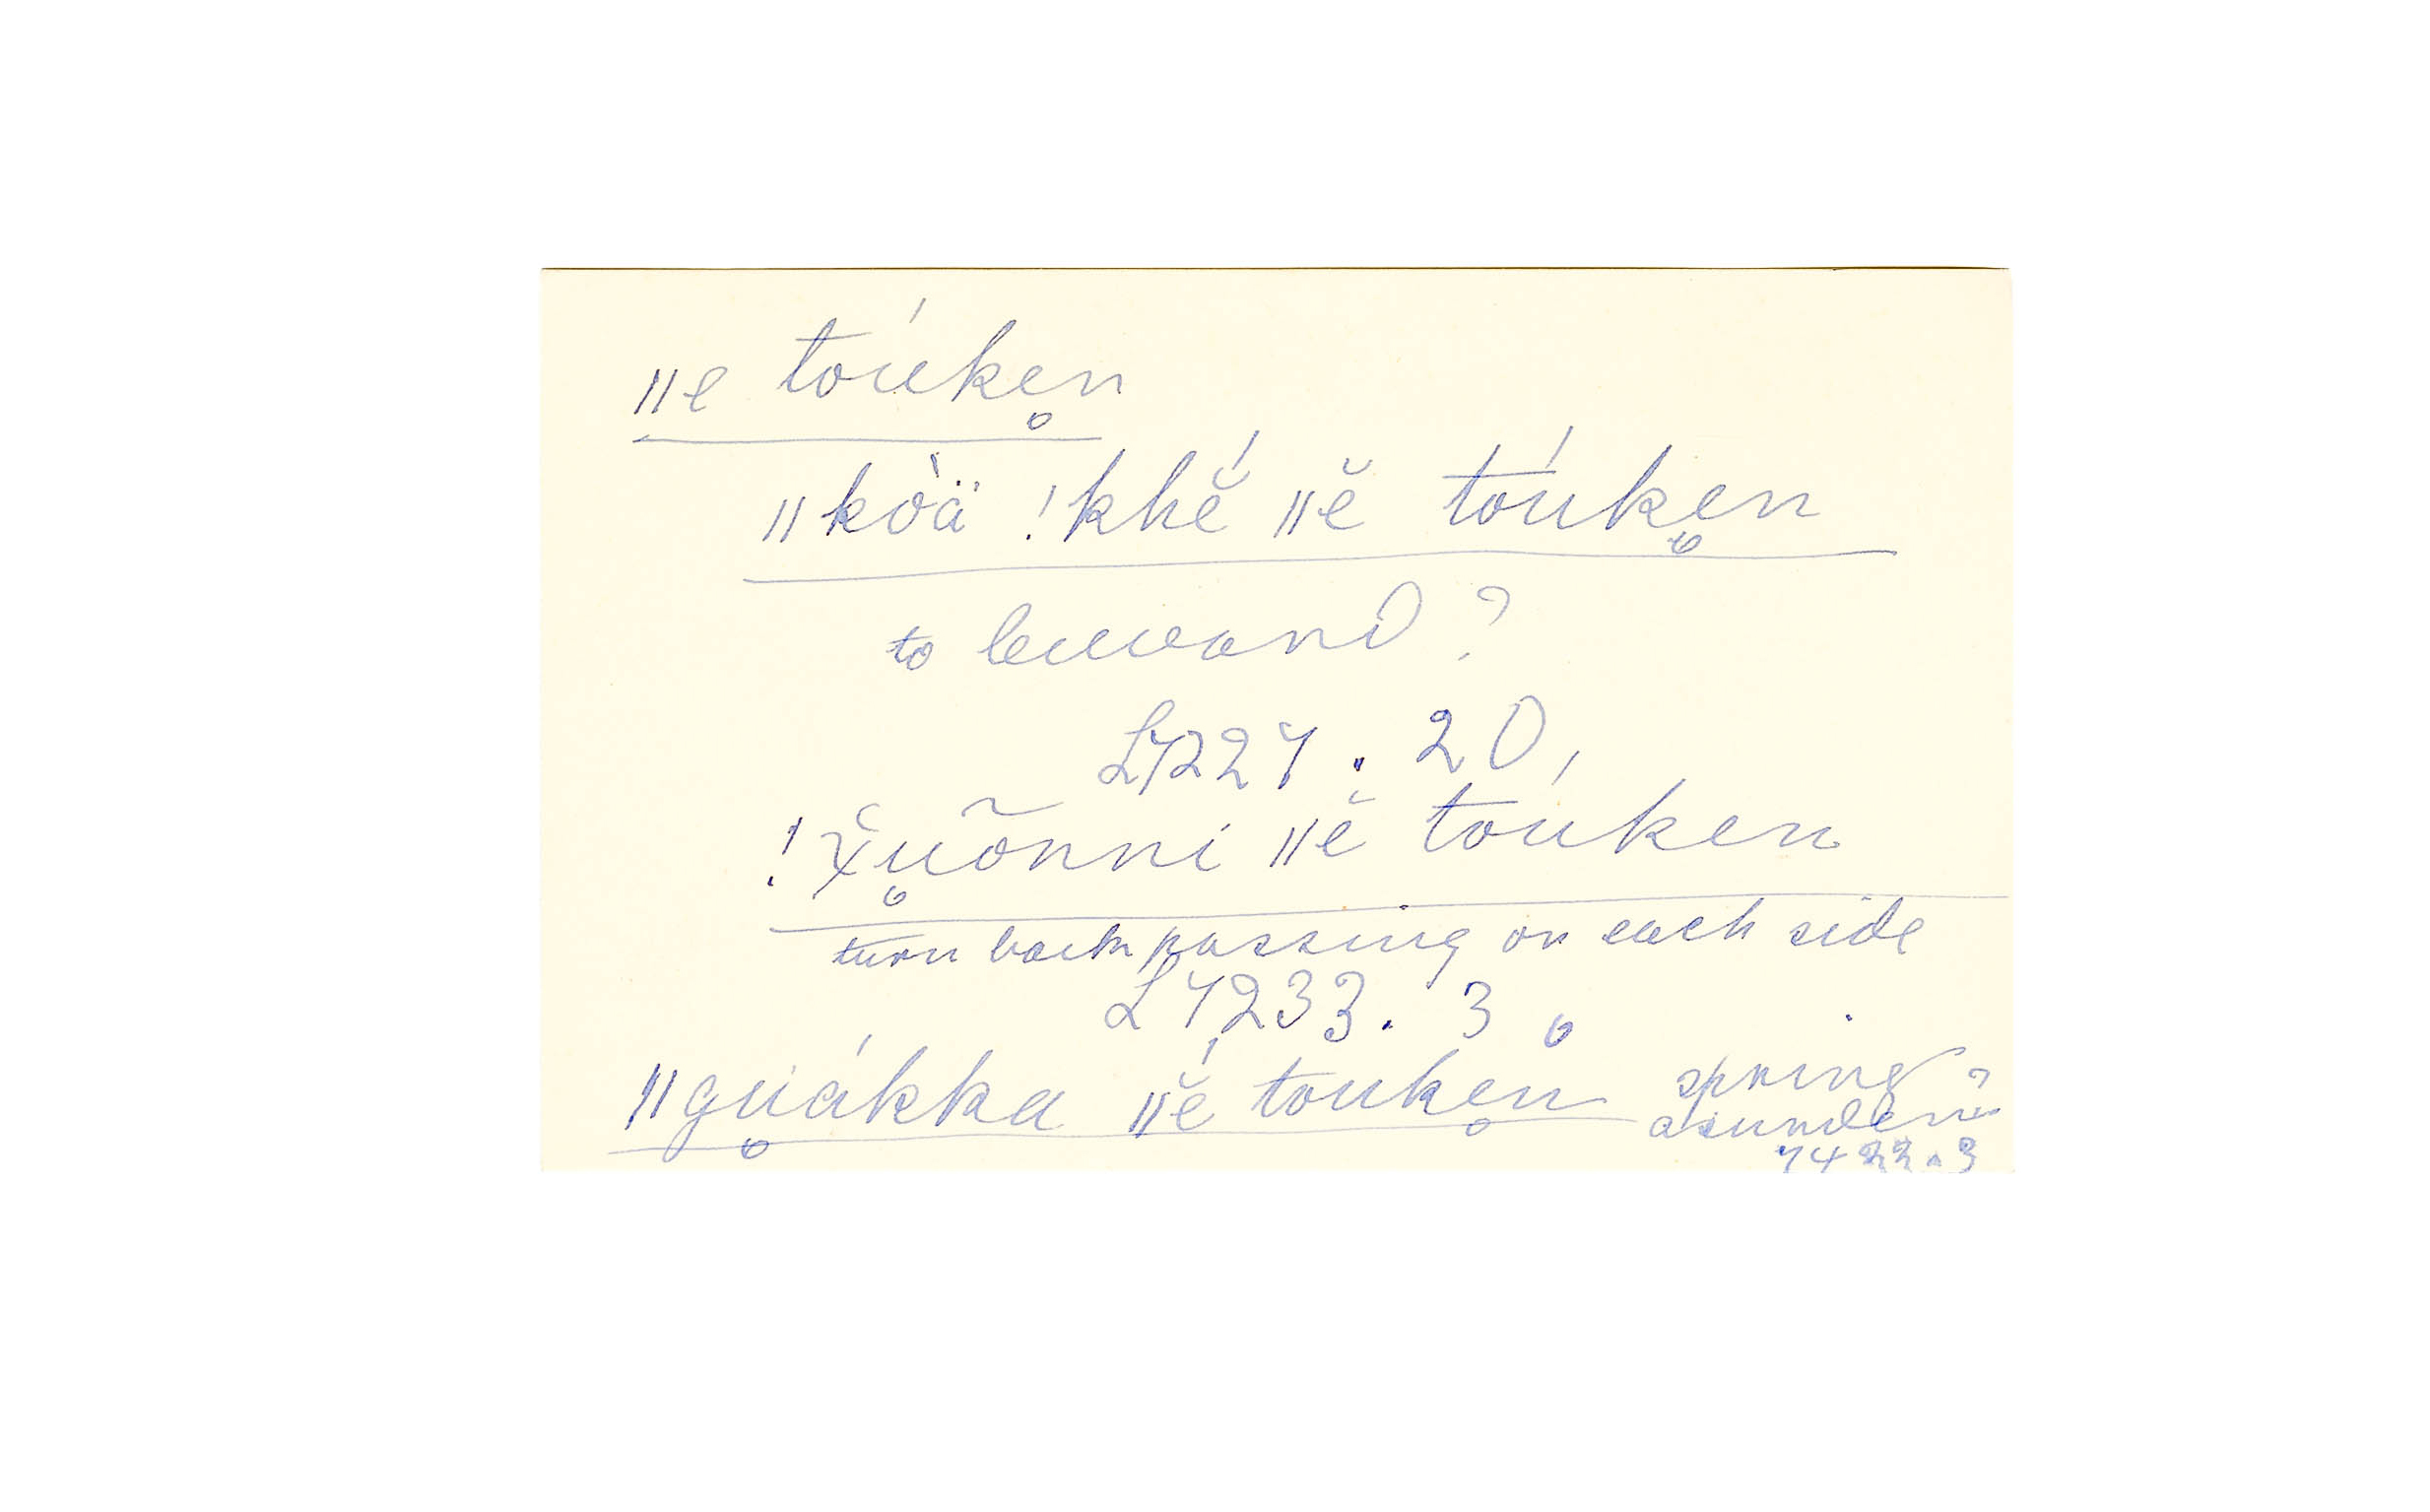 ǁe tóuken̥
ǁkòä !khĕ́ ǁĕ tóuke̥n
to ?
L7227. 20,
!χ̆u̥õnni ǁĕ tóuken
turn back passing on each side
L7233. 3.
ǁgu̥ákka ǁĕ́ touke̥n spring
asunder?
7422.3